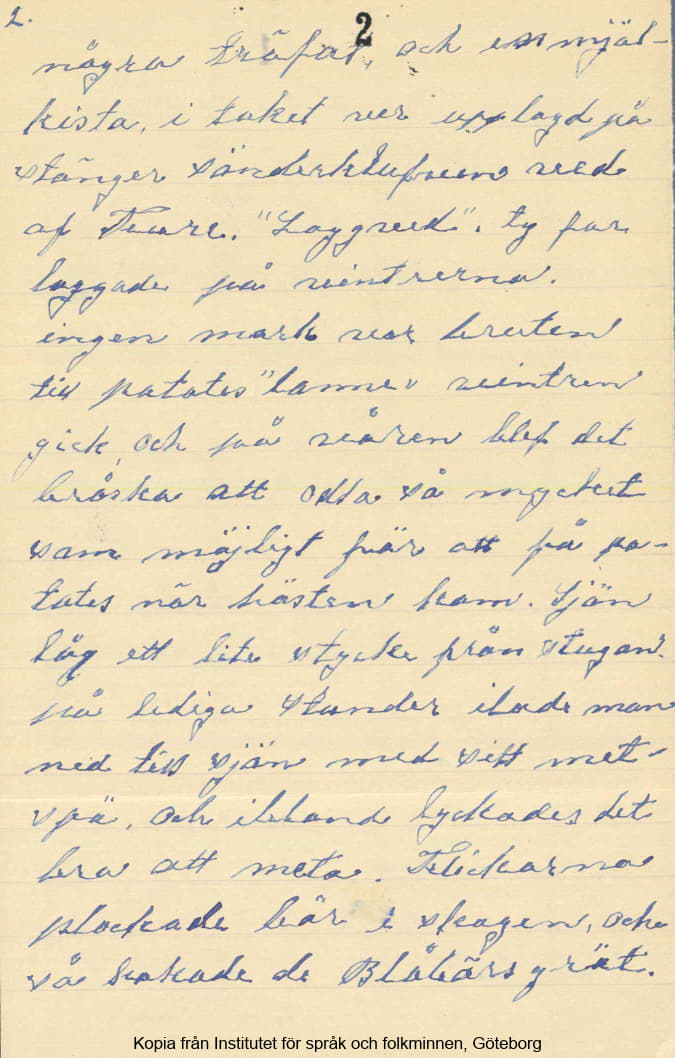 2.
2
några träfat, och en mjöl-
kista, i taket var upplagd på
stänger sönderklufven ved
af Ture. "Loggved". ty far
loggade på vintrerna.
ingen mark var bruten
till potates "lanne" vintren
gick, och på våren blef det
bråska att odla så mycket
som möjligt för att få po-
tates när hösten kom. Sjön
låg ett lite stycke från stugan.
på lediga stunder ilade man
ned till sjön med sitt met-
spö, och ibland lyckades det
bra att meta. Flickorna
plockade bär i skogen, och
så kokade de Blåbärsgröt.
Kopia från Institutet för språk och folkminnen, Göteborg